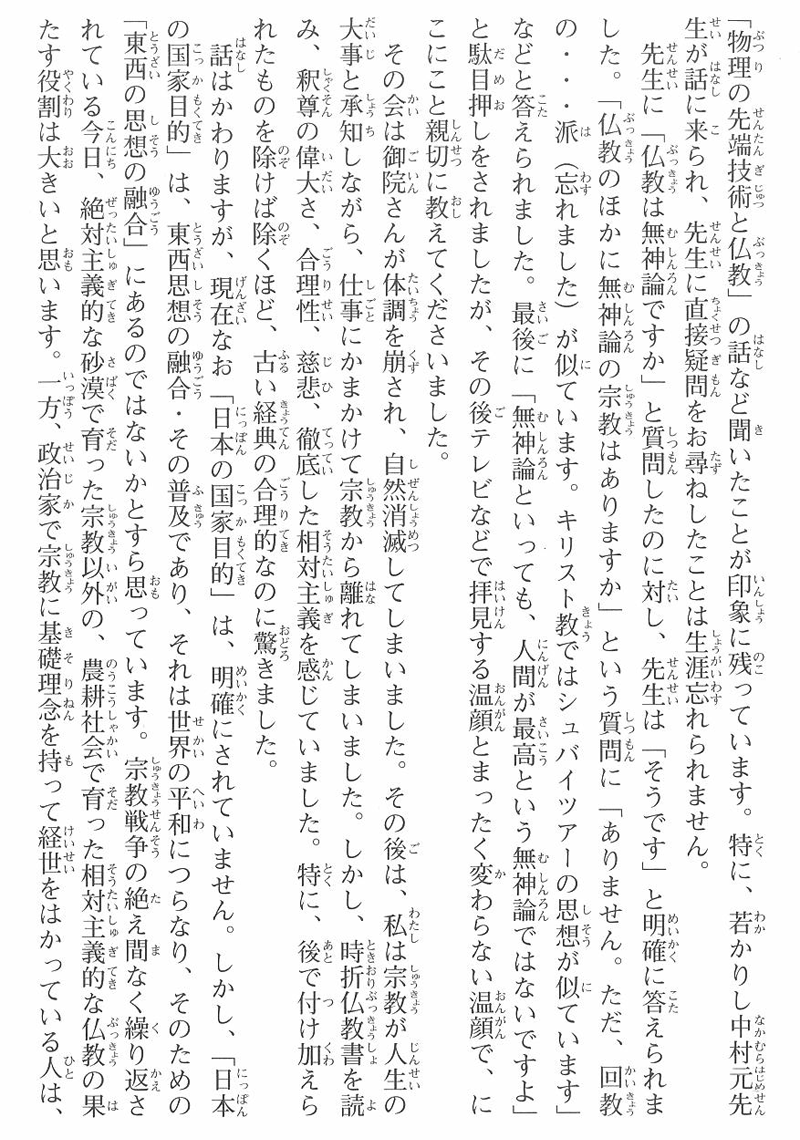 「物理の先端技術と仏教」の話など聞いたことが印象に残っています。特に、若かりし中村元先
生が話に来られ、先生に直接疑問をお尋ねしたことは生涯忘れられません。
先生に「仏教は無神論ですか」と質問したのに対し、先生は「そうです」と明確に答えられま
した。「仏教のほかに無神論の宗教はありますか」という質問に「ありません。ただ、回教
の・・・派（忘れました）が似ています。キリスト教ではシュバイツアーの思想が似ています」
などと答えられました。最後に「無神論といっても、人間が最高という無神論ではないですよ」
と駄目押しをされましたが、その後テレビなどで拝見する温顔とまったく変わらない温顔で、に
こにこと親切に教えてくださいました。
その会は御院さんが体調を崩され、自然消滅してしまいました。その後は、私は宗教が人生の
大事と承知しながら、仕事にかまかけて宗教から離れてしまいました。しかし、時折仏教書を読
み、釈尊の偉大さ、合理性、慈悲、徹底した相対主義を感じていました。特に、後で付け加えら
れたものを除けば除くほど、古い経典の合理的なのに驚きました。
話はかわりますが、現在なお「日本の国家目的」は、明確にされていません。しかし、「日本
の国家目的」は、東西思想の融合・その普及であり、それは世界の平和につらなり、そのための
「東西の思想の融合」にあるのではないかとすら思っています。宗教戦争の絶え間なく繰り返さ
れている今日、絶対主義的な砂漠で育った宗教以外の、農耕社会で育った相対主義的な仏教の果
たす役割は大きいと思います。一方、政治家で宗教に基礎理念を持って経世をはかっている人は、